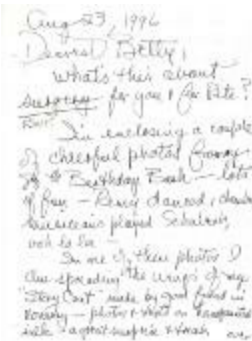 Aug 23, 1996
Dearest Betty,
What's this about
surgery for you & for Pete?
I'm enclosing a couple
of cheerful photos from
Birthday Bash — lots
of fun — danced,
musicians played
ooh la la —
In one of these photos I
am spreading the wings of my
"Story Coat" made by good friend in
— photos & on
silk — a great surprise &
over